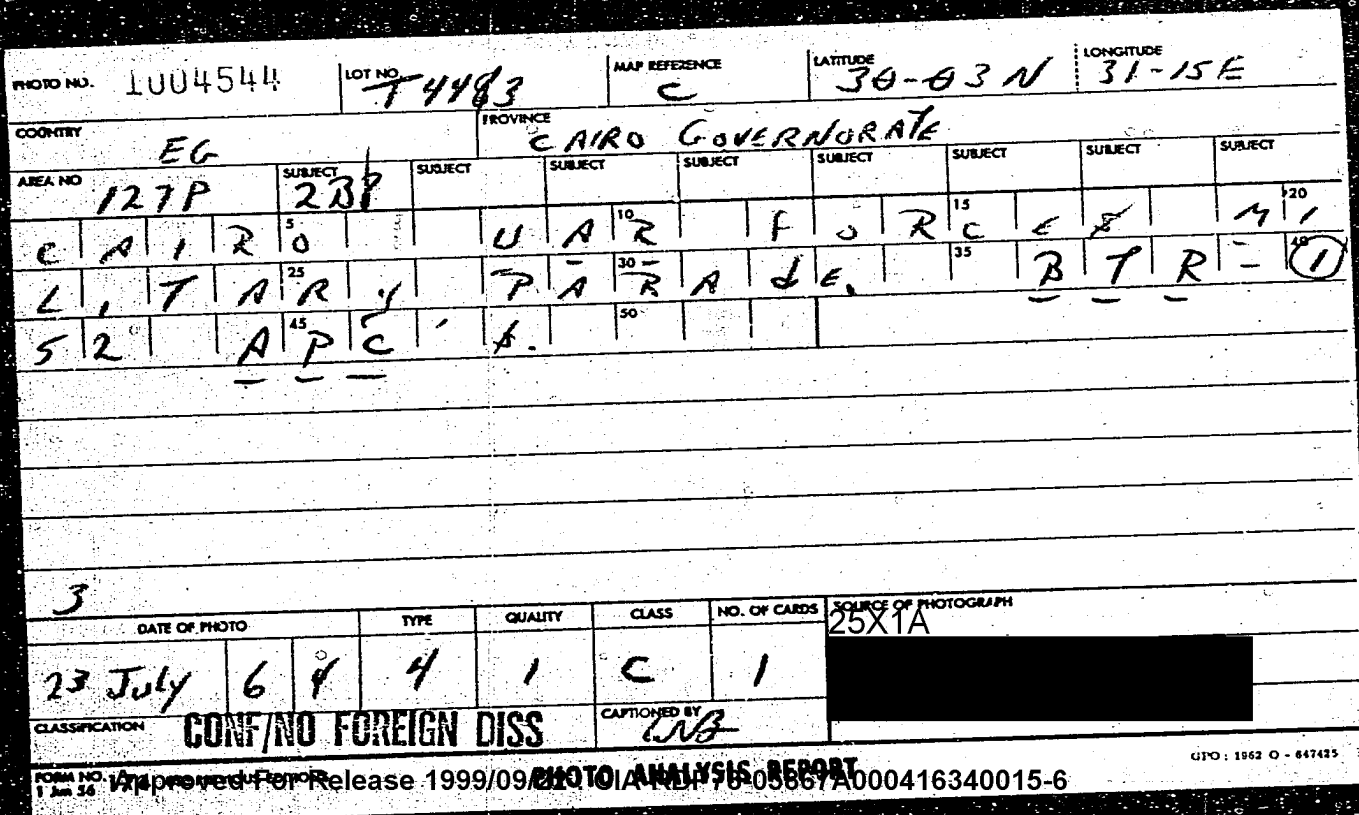 PHOTO NO. 1004544 LOT NO. T4483 MAP REFERENCE C LATITUDE 30-03 N LONGITUDE 31-15E
COUNTRY EG PROVINCE CAIRO GOVERNORATE
AREA NO 127P SUBJECT 2B SUBJECT SUBJECT SUBJECT SUBJECT SUBJECT SUBJECT SUBJECT
CAIRO 5 UAR 10 FORCES 15 MI 20
LITARY 25 PARADE. 30 35 BTR-1 40
52 APC's. 45 50
3
DATE OF PHOTO TYPE QUALITY CLASS NO. OF CARDS SOURCE OF PHOTOGRAPH
25X1A
23 July 64 4 1 C 1
CLASSIFICATION CONF/NO FOREIGN DISS CAPTIONED BY
GPO : 1962 O - 647425
FORM NO. PHOTO ANALYSIS REPORT
1 Jun 56 Approved For Release 1999/09/ CIA-RDP78-05867A000416340015-6